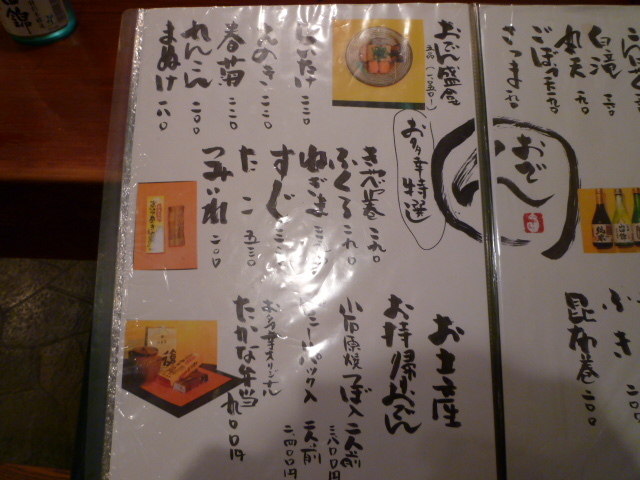 白滝 一九〇
丸天 一九〇
ごぼう天 一九〇
さつま
おでん
ふき
昆布巻 二〇〇
おでん盛合
五品 (一、〇五〇)
えのき 二二〇
春菊 二二〇
れんこん 二〇〇
まぬけ 一八〇
お多幸特選
キャベツ巻 二九〇
ふくろ 二九〇
ねぎま
すじ
たこ 五三〇
つみいれ 二〇〇
お土産
お持帰おでん
小田原焼つぼ入 二人前
三八〇〇円
ビニールパック入 二人前
二四〇〇円
お多幸オリジナル
たかな弁当 九〇〇円